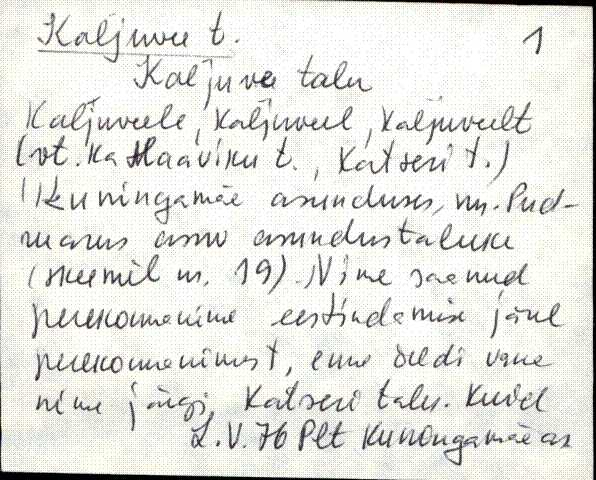 Kaljuvee t. 1
Kaljuvee talu
Kaljuveele, Kaljuveel, Kaljuveelt
(vt. ka Haaviku t., Katseri t.)
Kuningamäe asunduses, nn. Pud-
ruaru asuv asundustaluke
(skeemil nr. 19). Nime saanud
perekonnanime eestindamise järel
perekonnanimest, enne öeldi vana
nime järgi, Katseri talu. Kuid
L.V. 76 Plt Kuningamäe as